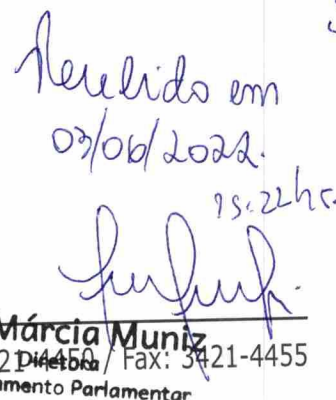 Recebido em
03/06/2022.
15:22hs
Márcia Muniz
Diretora
21-4450 / Fax: 3421-4455
amento Parlamentar